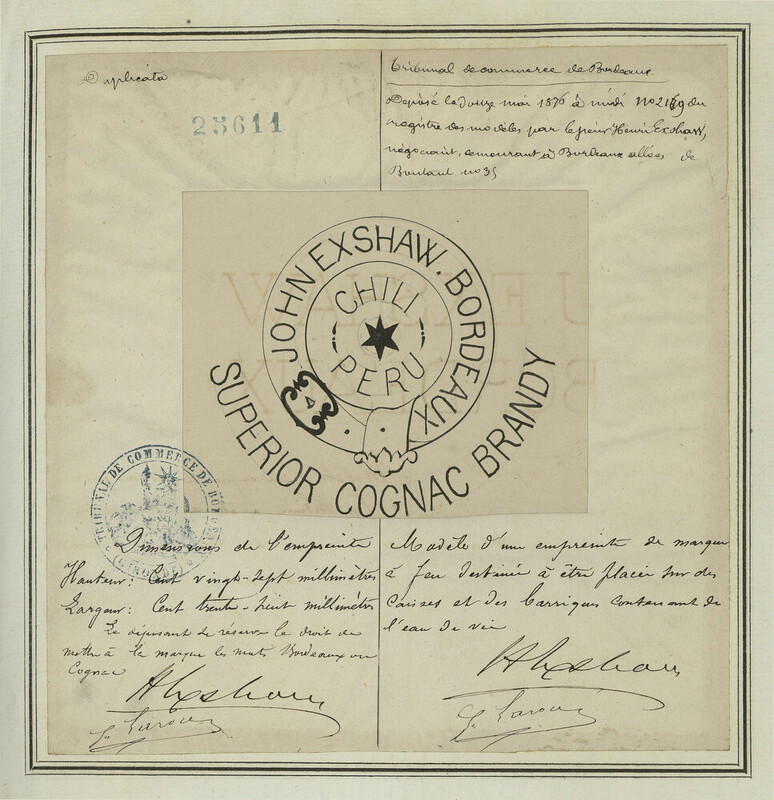 Duplicata
25611
Tribunal de commerce de Bordeaux
Déposé le douze mai 1876 à midi No 2169 du
registre des modèles par le sieur Henri Exshaw,
négociant, demeurant à Bordeaux allées de
Boutaut no 35
JOHN EXSHAW. BORDEAUX
CHILI
PERU
SUPERIOR COGNAC BRANDY
TRIBUNAL DE COMMERCE DE
(GIRONDE)
Dimensions de l'empreinte
Hauteur: Cent vingt-sept millimètres
Largeur: Cent trente-huit millimètres
Le déposant se réserve le droit de
mettre à la marque les mots Bordeaux ou
Cognac
H Exshaw
Modèle d'une empreinte de marque
à feu destinée à être placée sur des
caisses et des barriques contenant de
l'eau de vie
H Exshaw